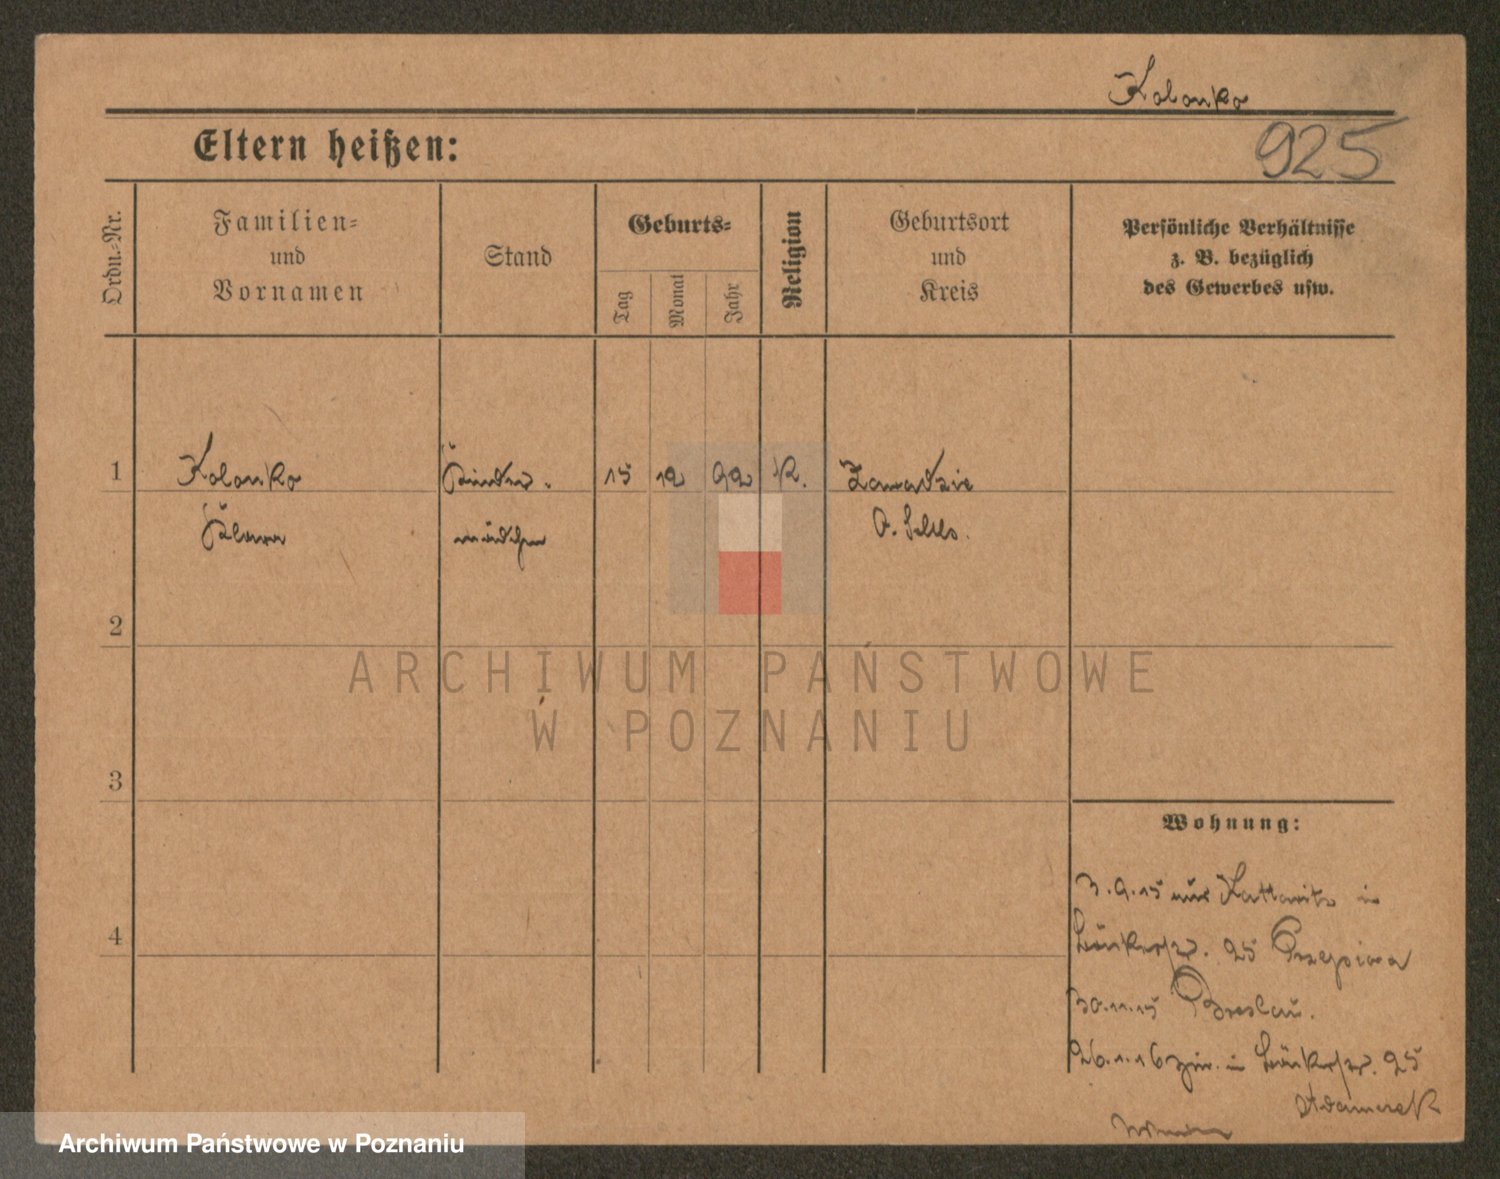 Kolonko
925
Eltern heißen:
Ordn.-Nr.
Familien-
und
Vornamen
Stand
Geburts-
Tag
Monat
Jahr
Religion
Geburtsort
und
Kreis
Persönliche Verhältnisse
z. B. bezüglich
des Gewerbes usw.
1
Kolonko
Kinder-
15 12 92 K.
Zawadzie
Klara
mädchen
O. Schles.
2
ARCHIWUM PAŃSTWOWE
W POZNANIU
3
Wohnung:
3.9.15 aus Kattowitz in
25
4
30.11.15 Breslau.
26.1.16 in 25
Adamczak
Archiwum Państwowe w Poznaniu